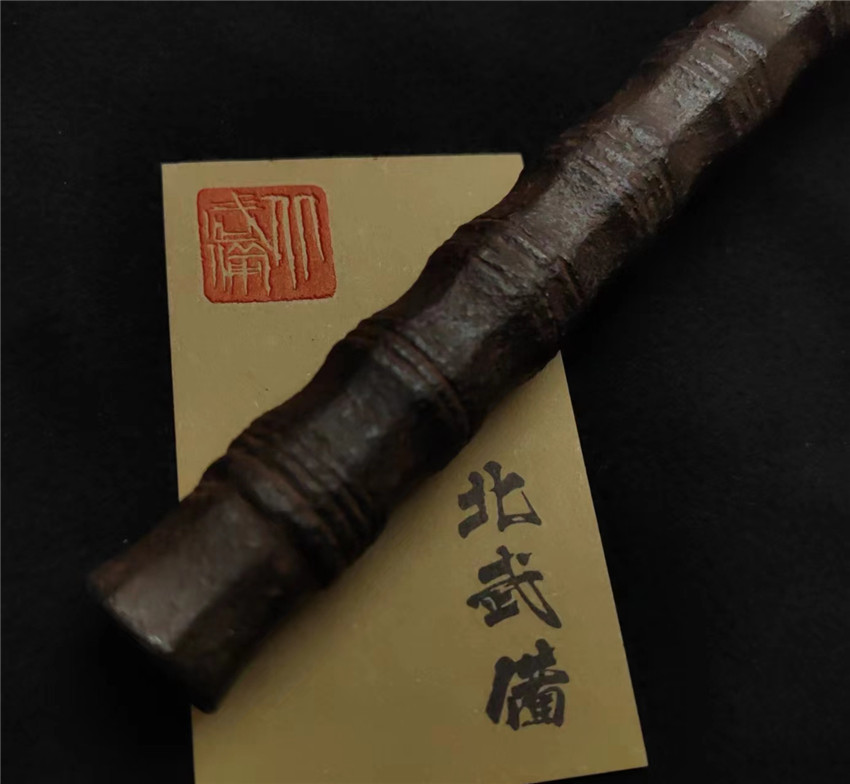 北
武備
北武備